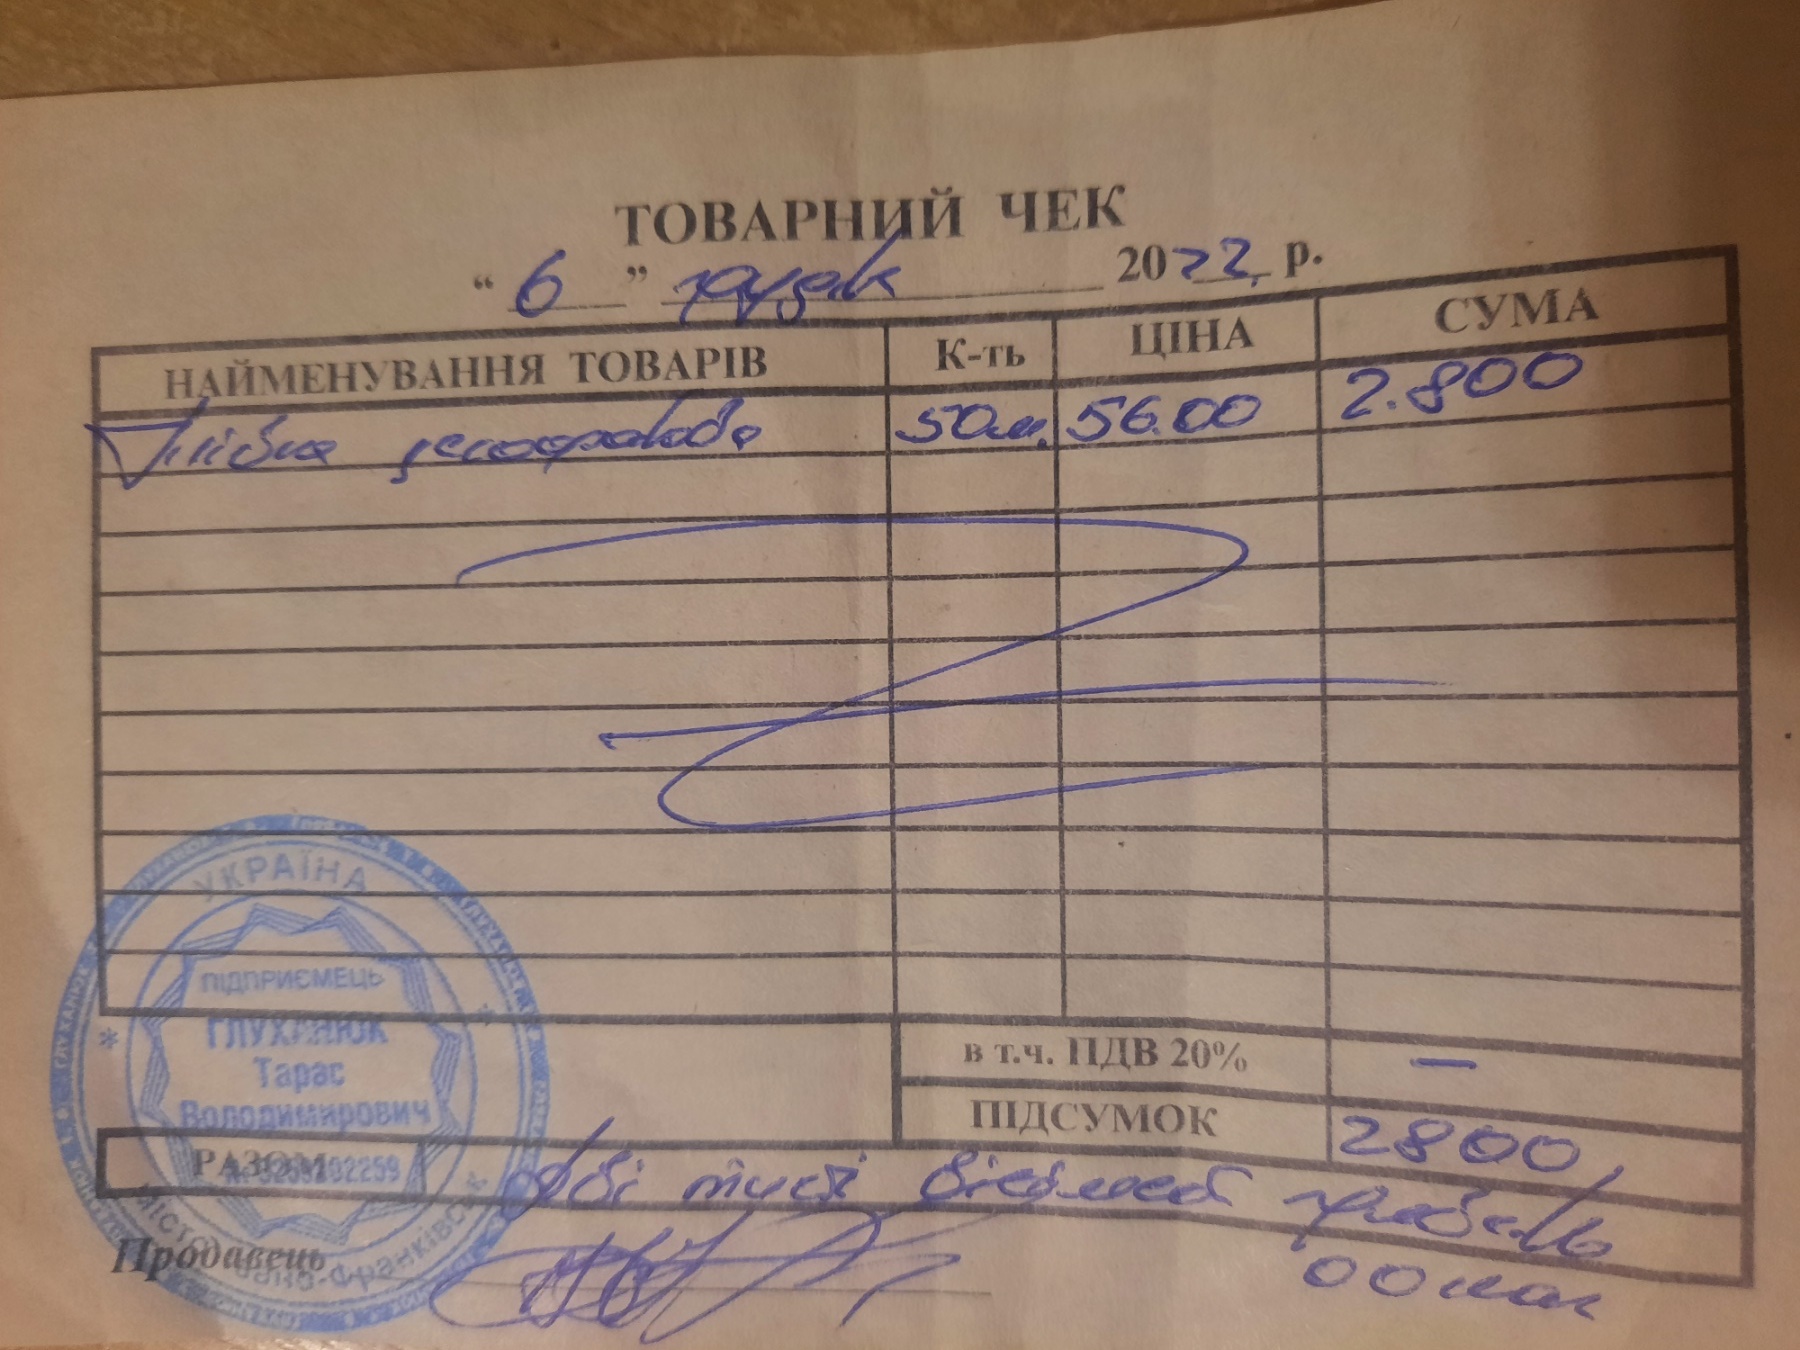 ТОВАРНИЙ ЧЕК
" 6 " грудня 2022 р.
НАЙМЕНУВАННЯ ТОВАРІВ К-ть ЦІНА СУМА
Плівка целофанова 50м. 56.00 2.800
в т.ч. ПДВ 20% —
ПІДСУМОК 2800
РАЗОМ Дві тисячі вісімсот гривень
00 коп
Продавець
УКРАЇНА
ПІДПРИЄМЕЦЬ
ГЛУХАНЮК
Тарас
Володимирович